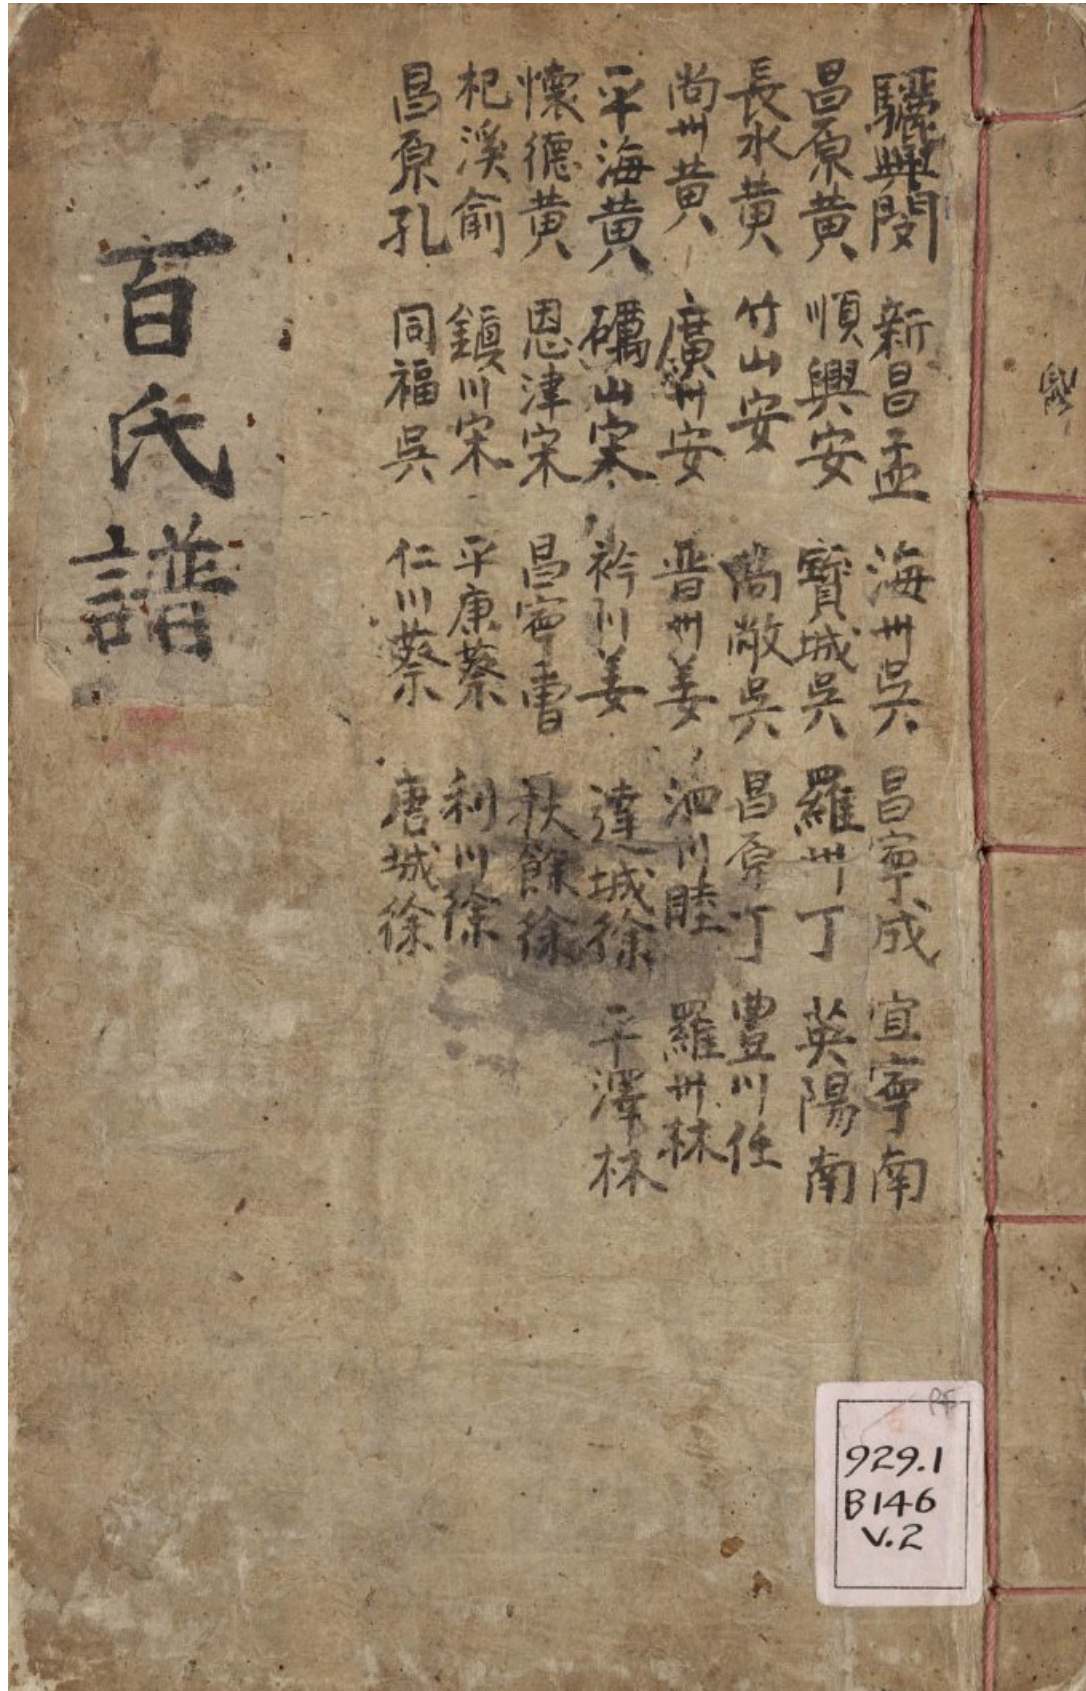 驪興閔 新昌孟 海州吳 昌寧成 宜寧南
昌原黄 順興安 寶城吳 羅州丁 英陽南
長水黄 竹山安 高敞吳 昌原丁 豊川任
尙州黄 廣州安 晋州姜 泗川睦 羅州林
平海黄 礪山宋 衿川姜 達城徐 平澤林
懷德黄 恩津宋 昌寧曺 扶餘徐
杞溪俞 鎭川宋 平康蔡 利川徐
昌原孔 同福吳 仁川蔡 唐城徐
百氏譜
929.1
B146
V.2